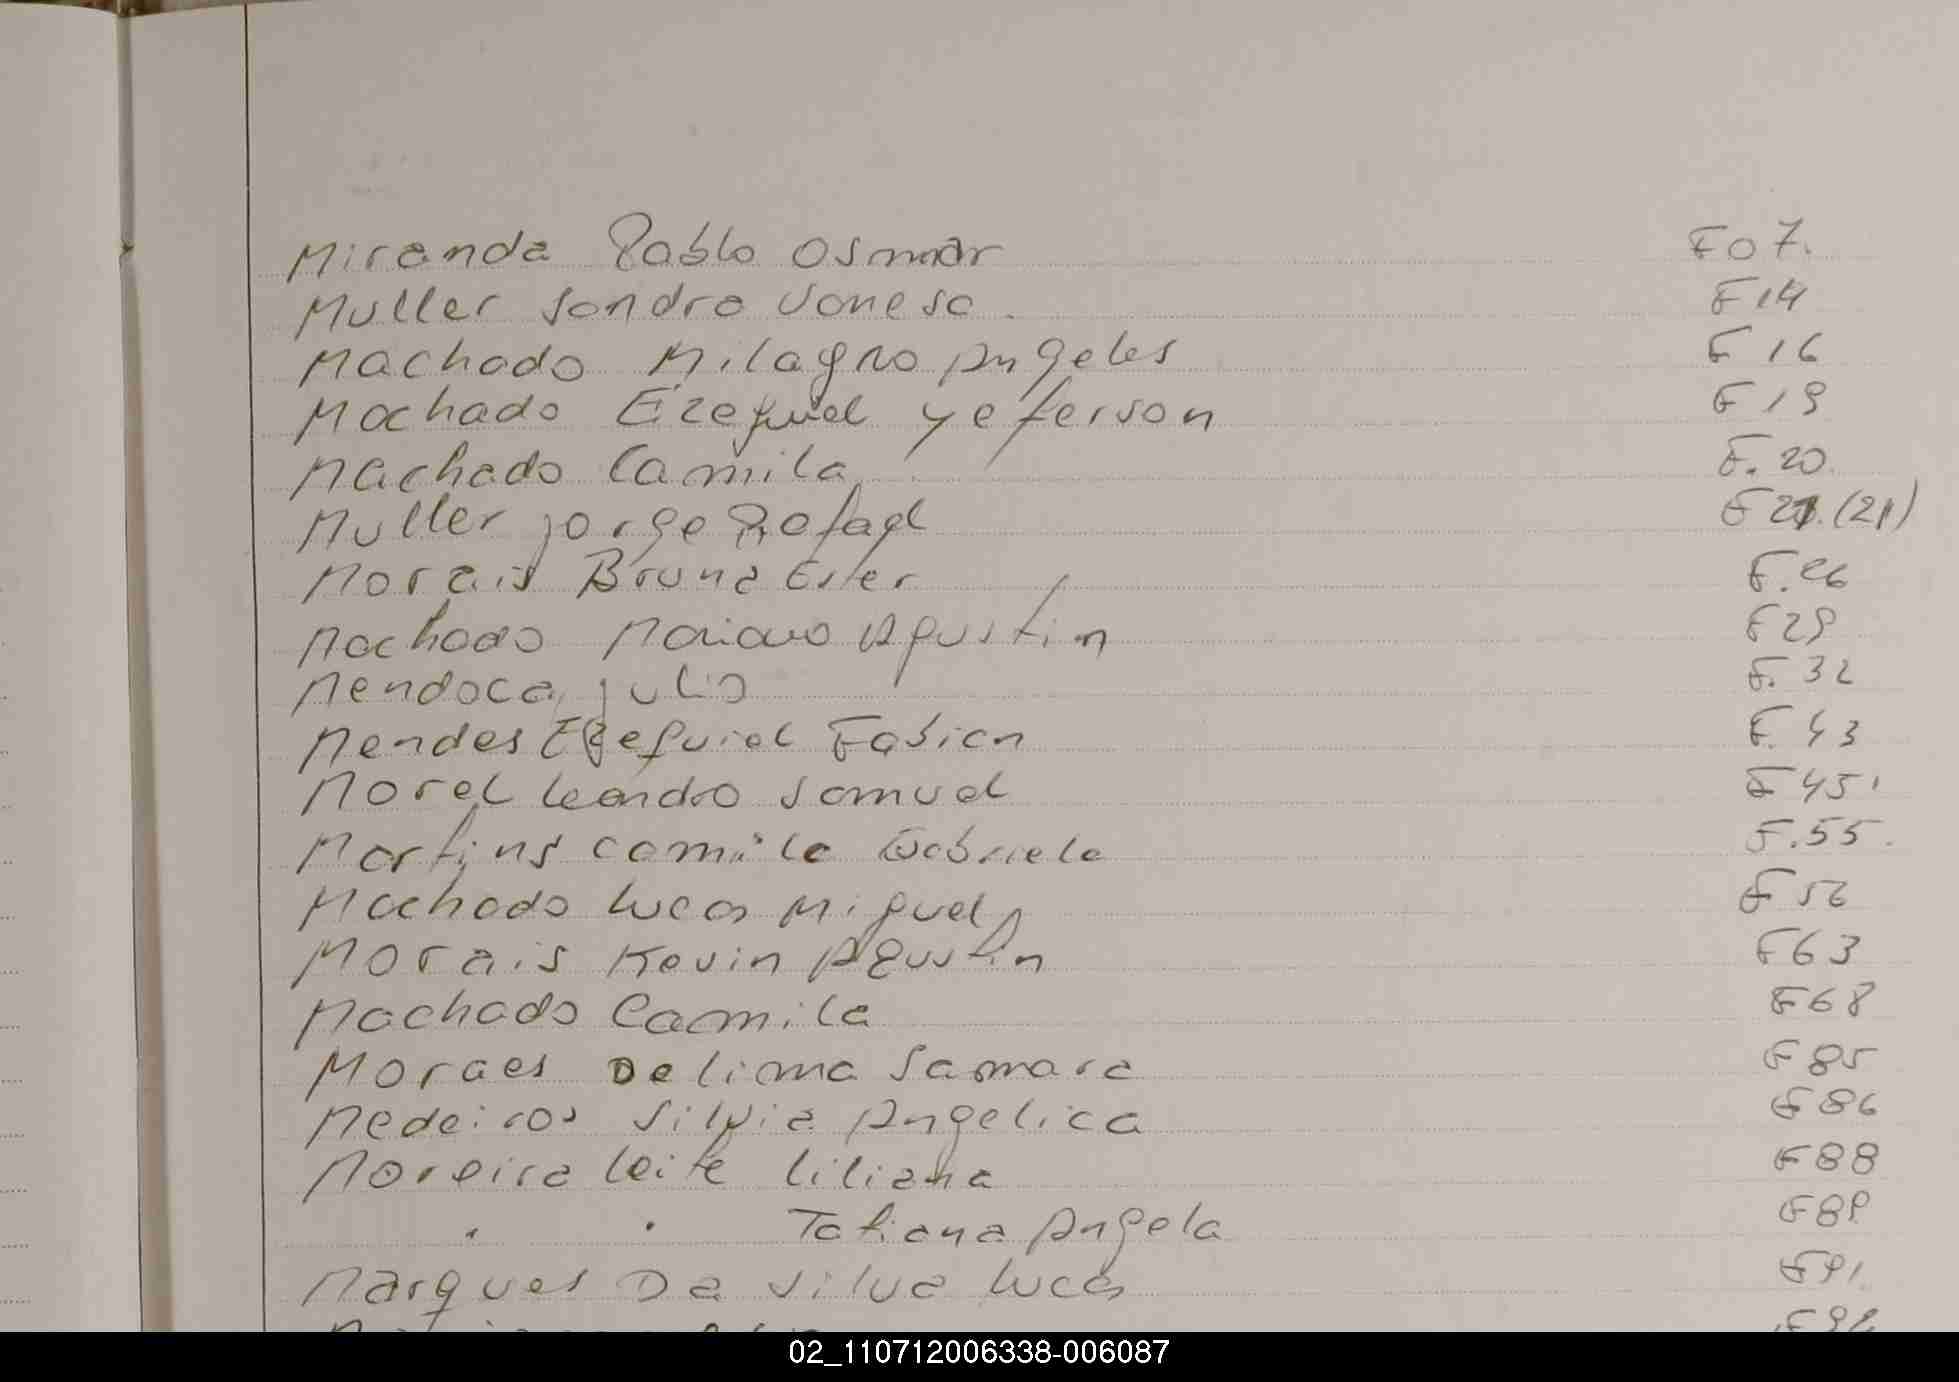 Miranda Pablo Osmar F07.
Muller Sandra Vanesa. F14
Machado Milagro Angeles F 16
Machado Ezequiel Yeferson F 19
Machado Camila F. 20.
Muller Jorge Rafael F21. (21)
Morais Bruna Ester F. 26
Machado Mariano Agustin F29
Mendoca Julio F. 32
Mendes Ezequiel Fabian F. 43
Morel Leandro Samuel F 45
Martins Camila Gabriela F. 55.
Machado Lucas Miguel F 56
Morais Kevin Agustin F63
Machado Camila F68
Moraes De Lima Samara F 85
Medeiros Silvia Angelica F86
Moreira Leite Liliana F88
" " Tatiana Angela F89
Marques Da Silva Lucas F91.
02_110712006338-006087